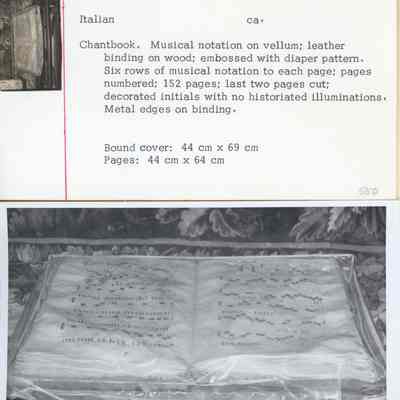 Italian ca.
Chantbook. Musical notation on vellum; leather
binding on wood; embossed with diaper pattern.
Six rows of musical notation to each page; pages
numbered; 152 pages; last two pages cut;
decorated initials with no historiated illuminations.
Metal edges on binding.
Bound cover: 44 cm x 69 cm
Pages: 44 cm x 64 cm